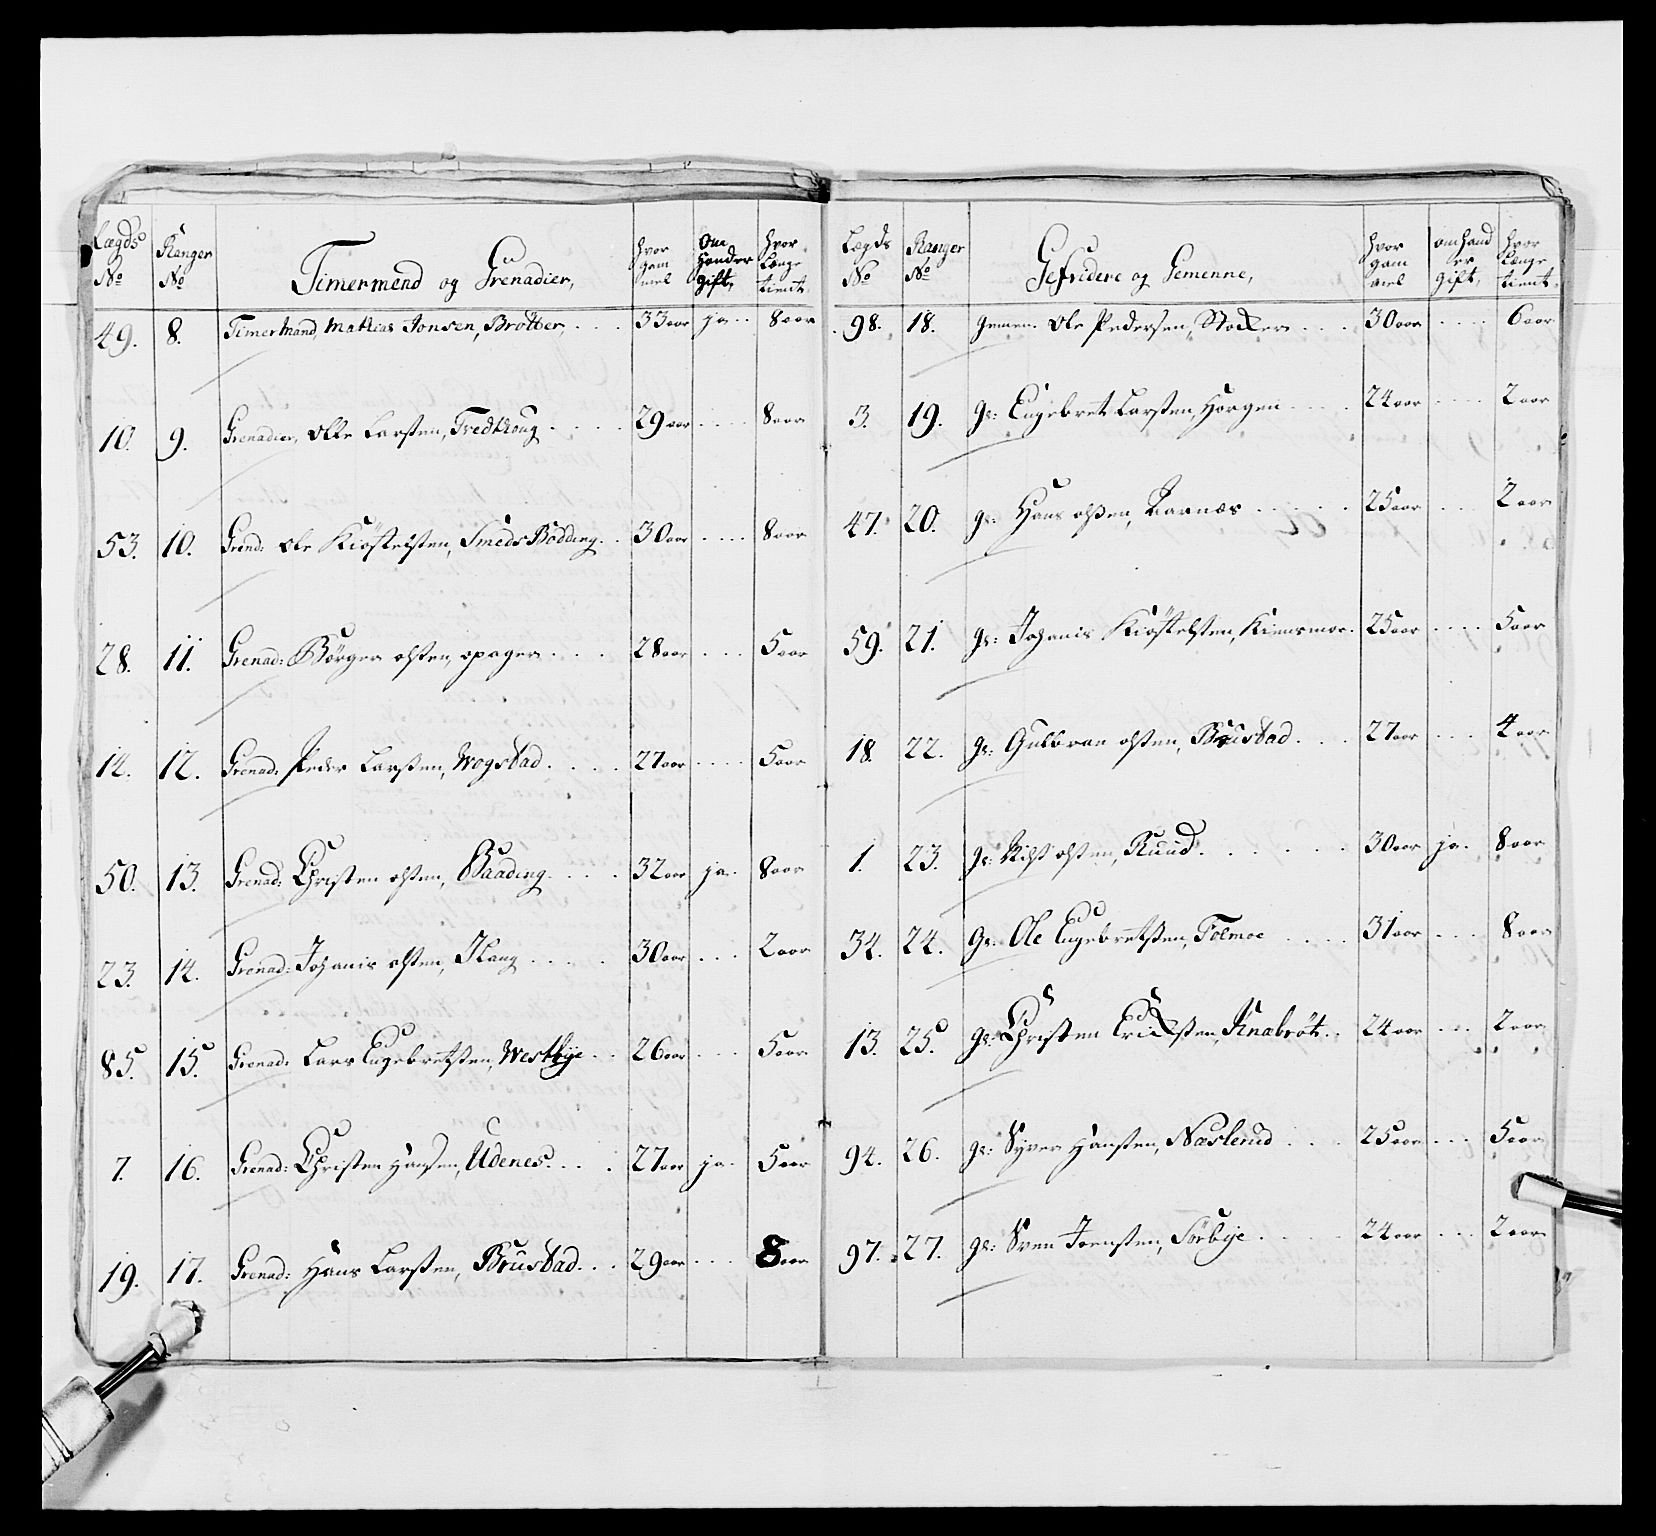 Lægds No | Ranger No | Timermend og Grenadier, | hvor gam mel | Om Hander gift, | hvor Længe tient,
49. | 8. | Timermand, Mathias Jonsen, Brotter, | 33 aar | ja | 8 aar
10. | 9. | Grenadier, Olle Larssen, | 29 aar | | 8 aar
53. | 10. | Grend: Ole Kiöstelssen, Smeds Bödding | 30 aar | | 8 aar
28. | 11. | Grenad: Börger olssen, opager | 28 aar | | 5 aar
14. | 12. | Grenad: Peder Larssen, Wogstad | 27 aar | | 5 aar
50. | 13. | Grenad: Christen olssen, Baading | 32 aar | ja | 8 aar
23. | 14. | Grenad: Johanis olssen, Haug | 30 aar | | 2 aar
85. | 15. | Grenad: Lars Engebretssen, Westbye | 26 aar | | 5 aar
7. | 16. | Grenad: Christen Hansen, Udenes | 27 aar | ja | 5 aar
19. | 17. | Grenad: Hans Larssen, Brustad | 29 aar | | 8 aar
Lægds No | Ranger No | Gefridere og Gemenne, | hvor gam mel | om hand er gift, | hvor Længe tient,
98. | 18. | Gemen: Ole Pedersen, Stocker | 30 aar | | 6 aar
3. | 19. | gr: Engebret Larssen, Horgen | 24 aar | | 2 aar
47. | 20. | gr: Hans olssen, Aarnæs | 25 aar | | 2 aar
59. | 21. | gr: Johanis Kiöstelssen, Kiensmoe | 25 aar | | 5 aar
18. | 22. | gr: Gulbran olssen, Brustad | 27 aar | | 4 aar
1. | 23. | gr: Nihs olssen, Ruud | 30 aar | ja | 8 aar
34. | 24. | gr: Ole Engebretssen, Tolmoe | 31 aar | | 8 aar
13. | 25. | gr: Christen Ericssen, Knabröt | 24 aar | | 2 aar
94. | 26. | gr: Syver Hanssen, Næslend | 25 aar | | 5 aar
97. | 27. | gr: Sven Joenssen, Sörbye | 24 aar | | 2 aar